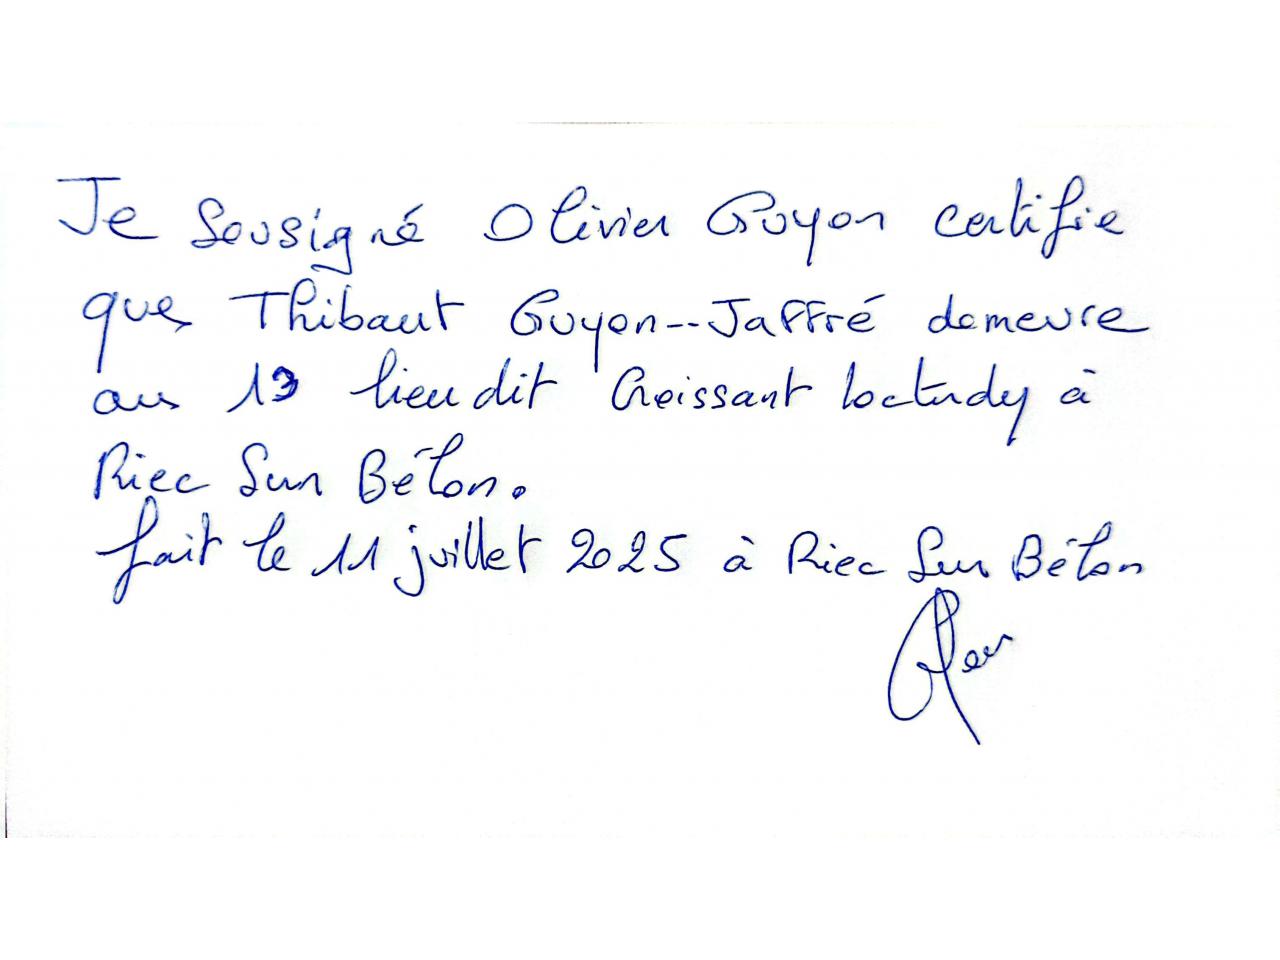 Je Sousigné Olivier Guyon certifie
que Thibaut Guyon--Jaffré demeure
au 13 lieu dit Croissant loctudy à
Riec Sur Bélon.
fait le 11 juillet 2025 à Riec Sur Bélon